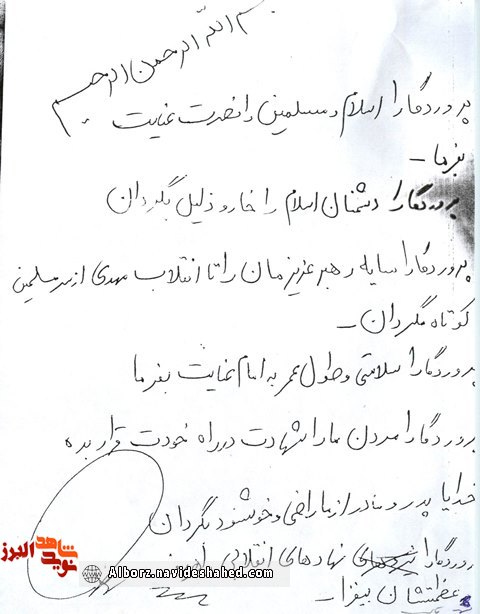 بسم الله الرحمن الرحیم
پروردگارا اسلام و مسلمین را نصرت عنایت
بفرما -
پروردگارا دشمنان اسلام را خار و ذلیل بگردان
پروردگارا سایه رهبر عزیزمان را تا انقلاب مهدی از سر مسلمین
کوتاه مگردان -
پروردگارا سلامتی و طول عمر به امام عنایت بفرما
پروردگارا مردن ما را شهادت در راه خودت قرار بده
خدایا پدر و مادر از ما راضی و خوشنود بگردان
پروردگارا نهادهای انقلابی
عظمتشان بیفزا -
نوید شاهد البرز
Alborz.navideshahed.com